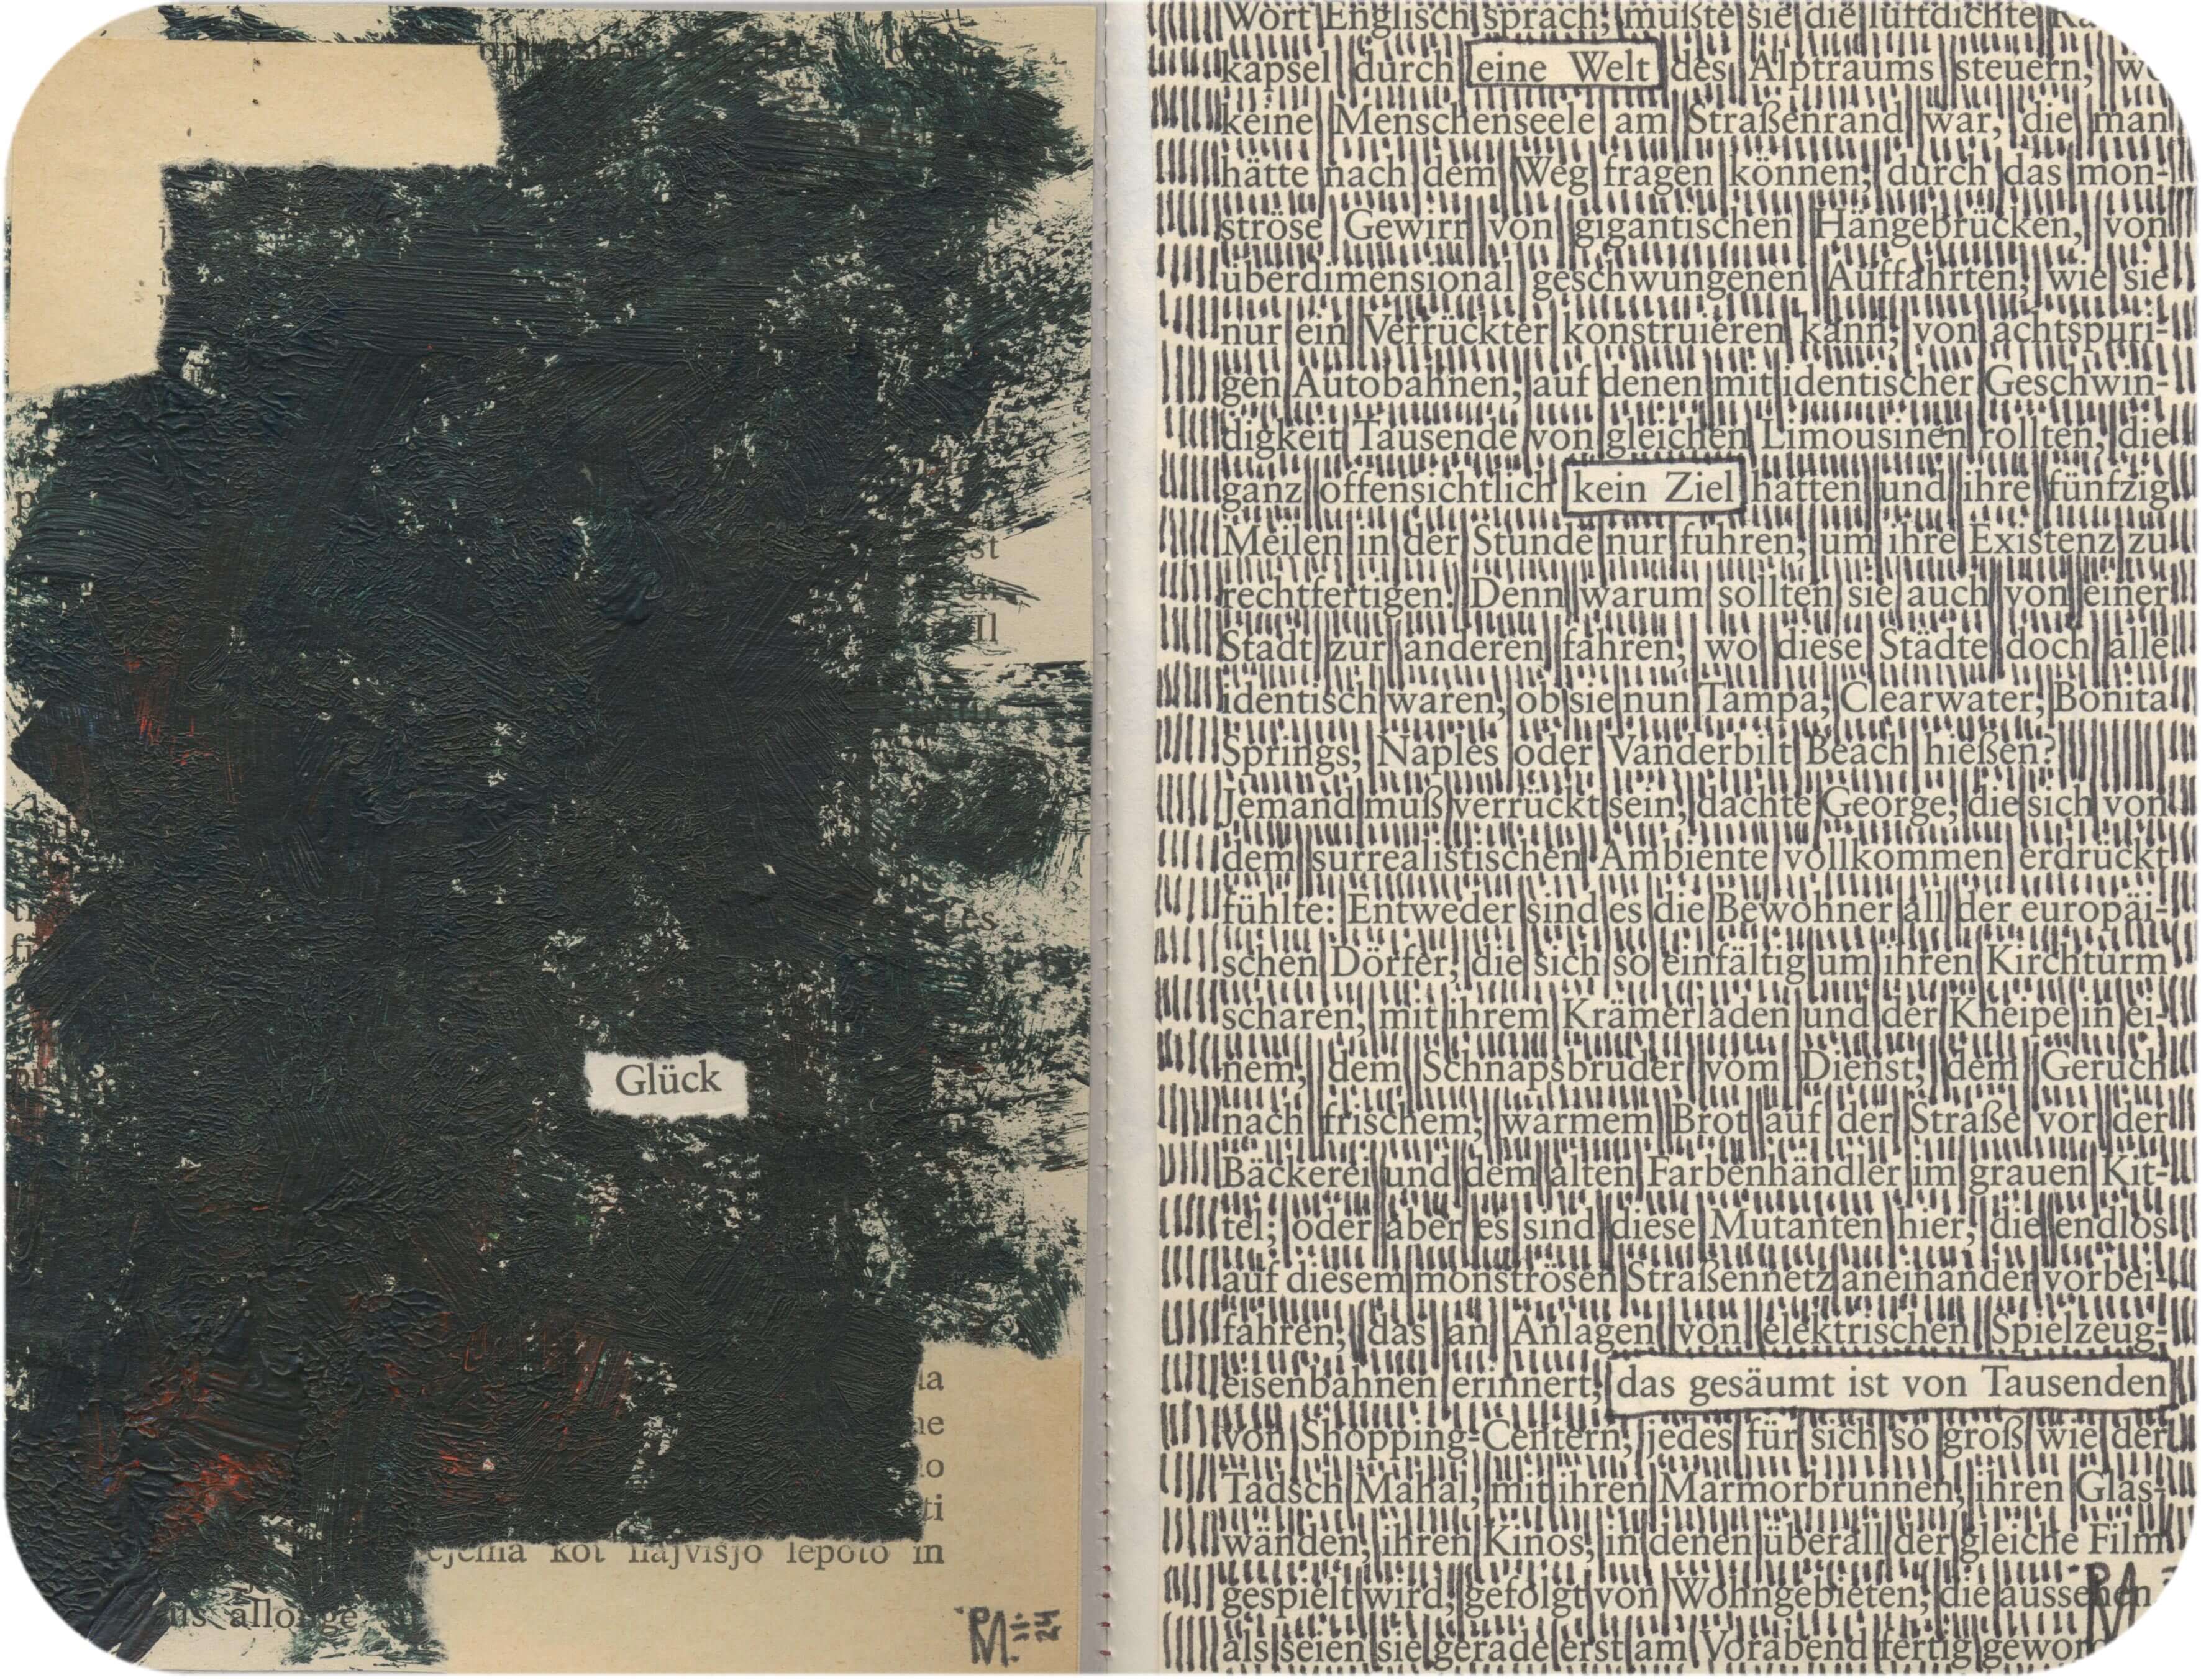 st
Il
Glück
ejema kot najvišjo lepoto in
us allonge
Wort Englisch sprach, mußte sie die luftdichte
kapsel durch eine Welt des Alptraums steuern, wo
keine Menschenseele am Straßenrand war, die man
hätte nach dem Weg fragen können, durch das mon-
ströse Gewirr von gigantischen Hängebrücken, von
überdimensional geschwungenen Auffahrten, wie sie
nur ein Verrückter konstruieren kann, von achtspuri-
gen Autobahnen, auf denen mit identischer Geschwin-
digkeit Tausende von gleichen Limousinen rollten, die
ganz offensichtlich kein Ziel hatten und ihre fünfzig
Meilen in der Stunde nur fuhren, um ihre Existenz zu
rechtfertigen. Denn warum sollten sie auch von einer
Stadt zur anderen fahren, wo diese Städte doch alle
identisch waren, ob sie nun Tampa, Clearwater, Bonita
Springs, Naples oder Vanderbilt Beach hießen?
Jemand muß verrückt sein, dachte George, die sich von
dem surrealistischen Ambiente vollkommen erdrückt
fühlte: Entweder sind es die Bewohner all der europäi-
schen Dörfer, die sich so einfältig um ihren Kirchturm
scharen, mit ihrem Krämerladen und der Kneipe in ei-
nem, dem Schnapsbruder vom Dienst, dem Geruch
nach frischem, warmem Brot auf der Straße vor der
Bäckerei und dem alten Farbenhändler im grauen Kit-
tel; oder aber es sind diese Mutanten hier, die endlos
auf diesem monströsen Straßennetz aneinander vorbei-
fahren, das an Anlagen von elektrischen Spielzeug-
eisenbahnen erinnert, das gesäumt ist von Tausenden
von Shopping-Centern, jedes für sich so groß wie der
Tadsch Mahal, mit ihren Marmorbrunnen, ihren Glas-
wänden, ihren Kinos, in denen überall der gleiche Film
gespielt wird, gefolgt von Wohngebieten, die aussehen
als seien sie gerade erst am Vorabend fertig gewor